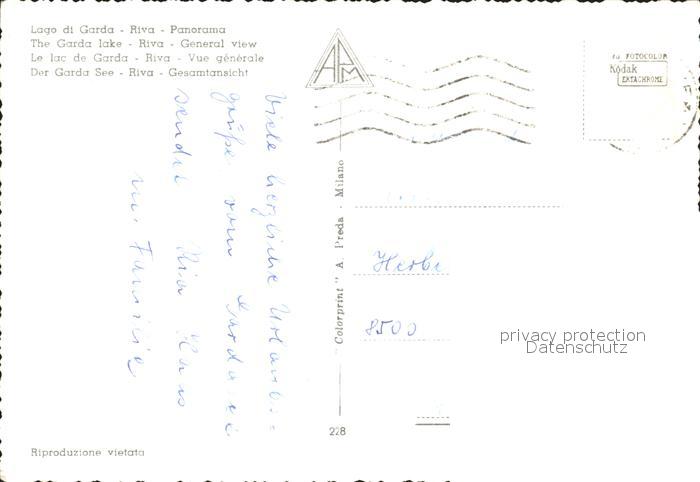 Lago di Garda - Riva - Panorama
The Garda lake - Riva - General view
Le lac de Garda - Riva - Vue générale
Der Garda See - Riva - Gesamtansicht
APM
FOTOCOLOR
Kodak
EKTACHROME
Viele herzliche Urlaubs=
grüße vom Gardasee
sendet
u. Familie
Colorprint " A. Preda - Milano
8500
228
privacy protection
Datenschutz
Riproduzione vietata